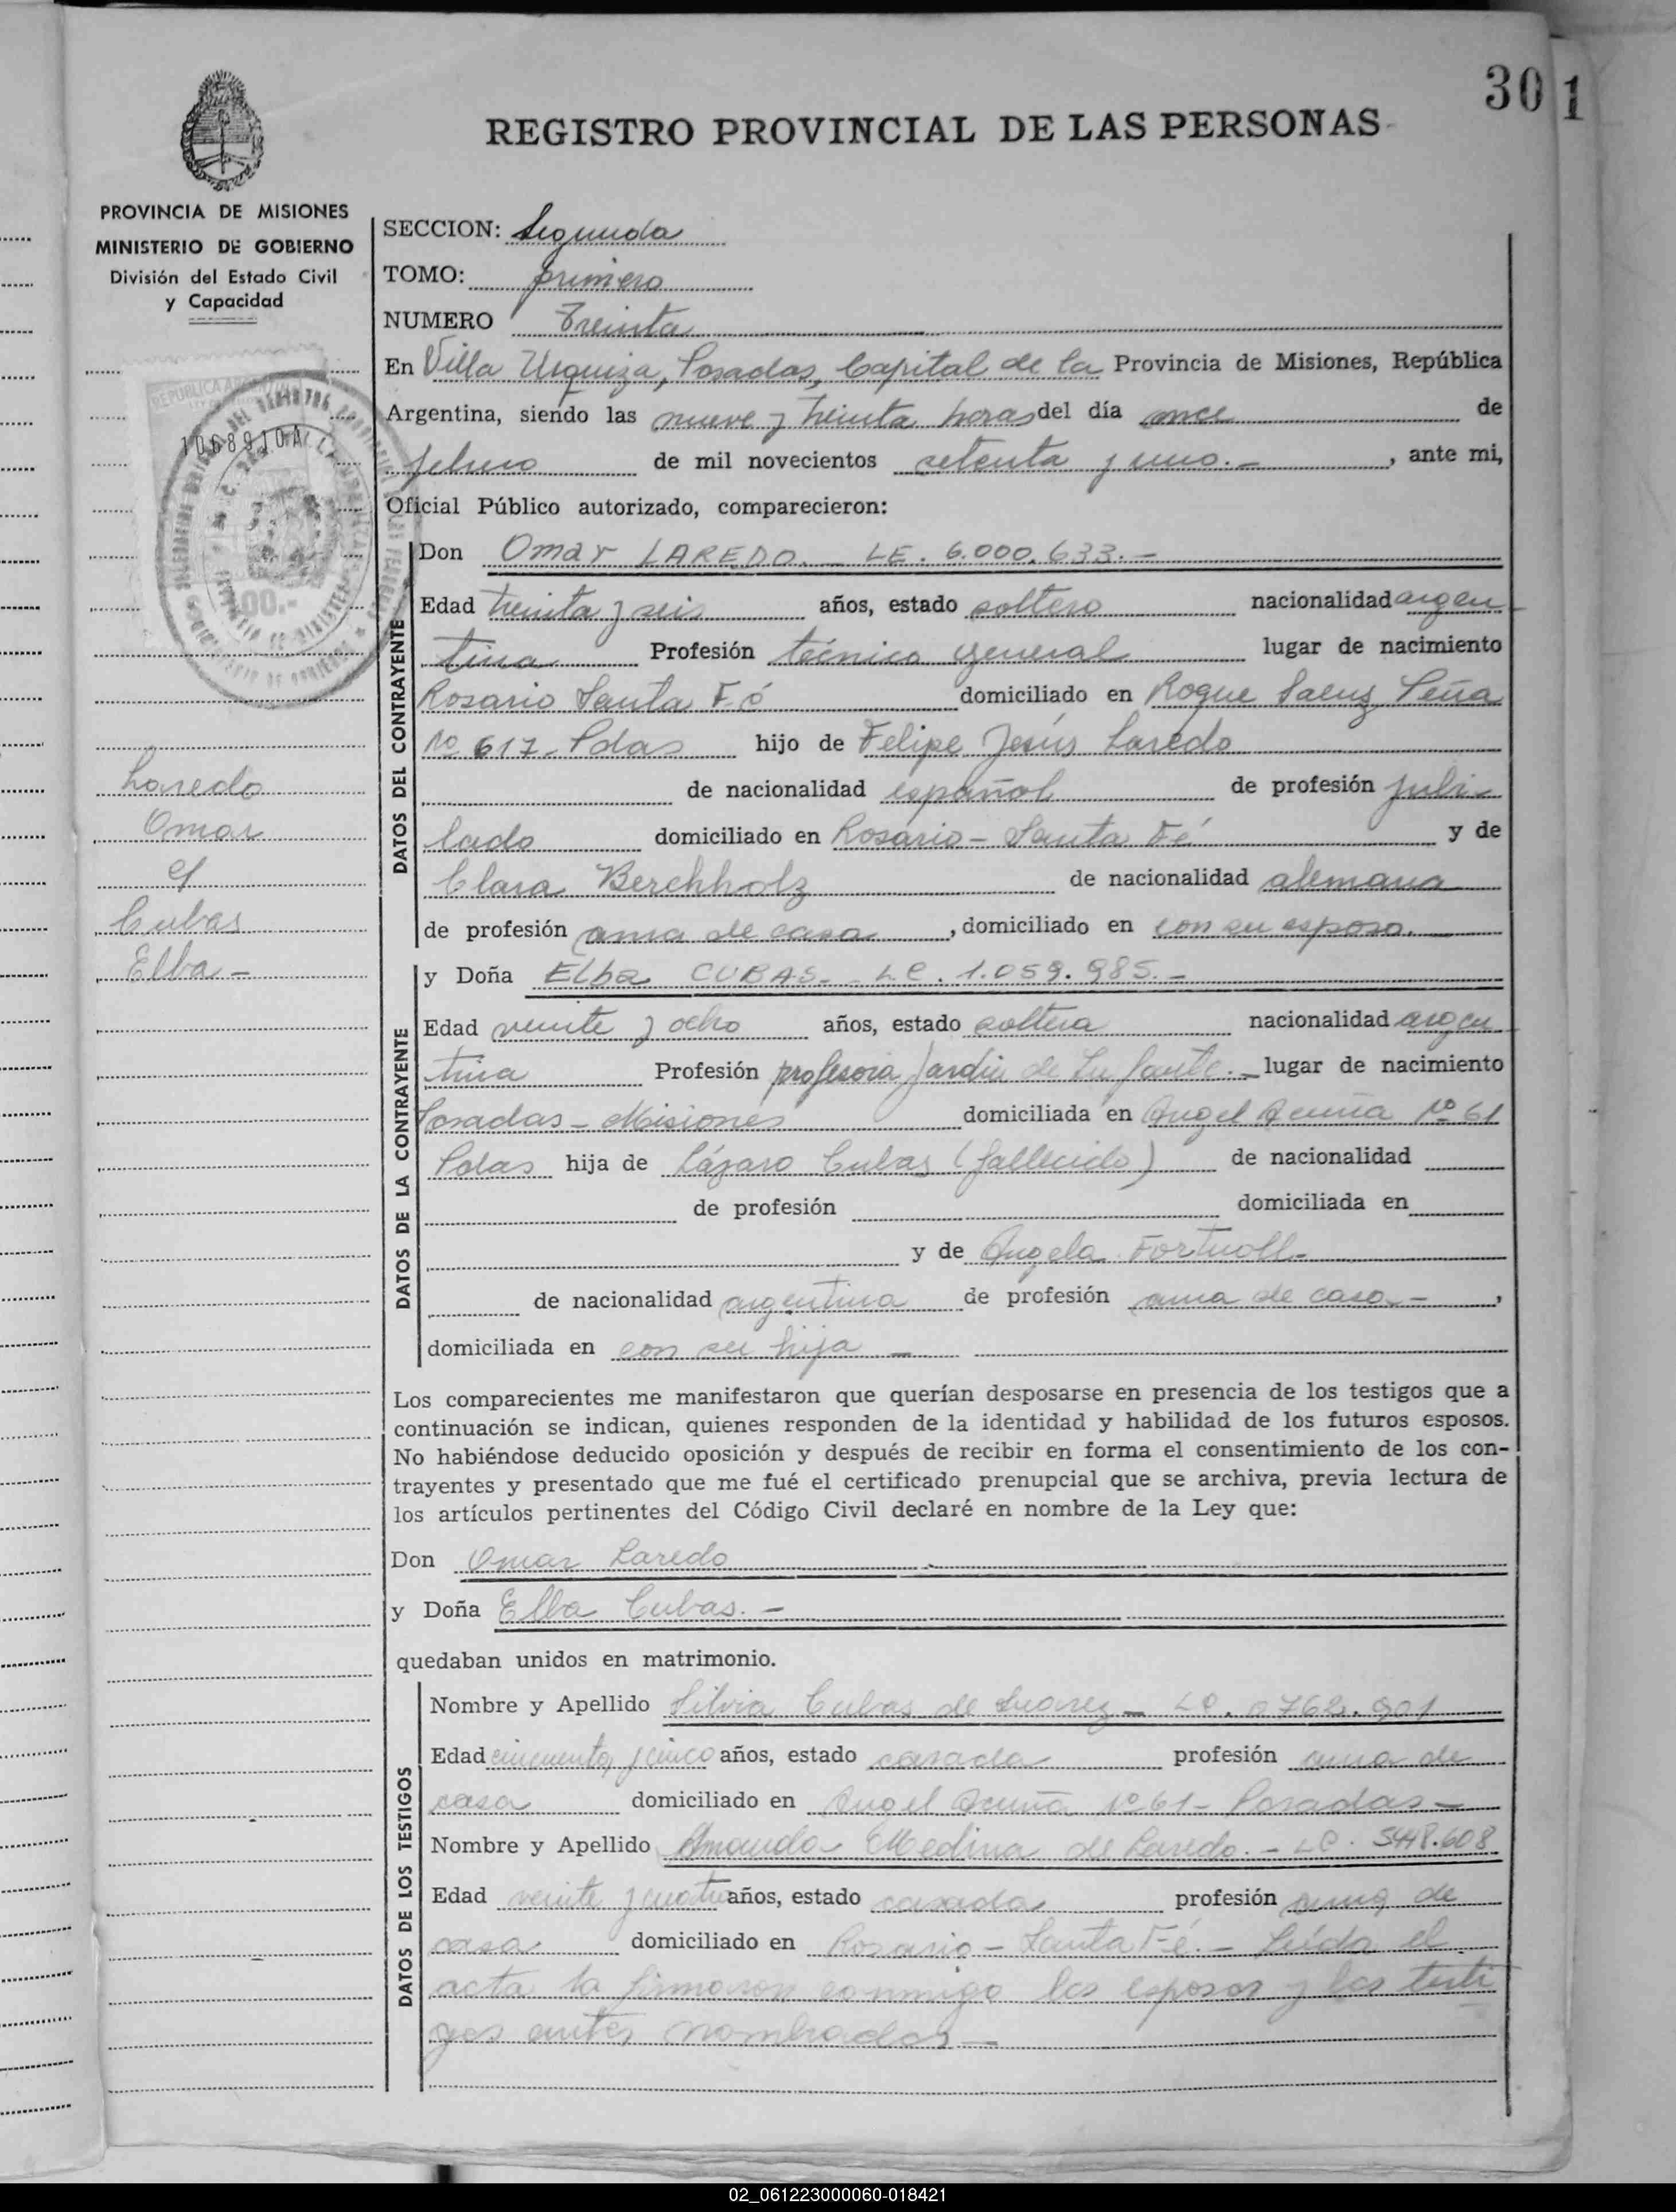 30 1
REGISTRO PROVINCIAL DE LAS PERSONAS
PROVINCIA DE MISIONES
MINISTERIO DE GOBIERNO
División del Estado Civil
y Capacidad
1068910A
REPUBLICA
Laredo
Omar
y
Cubas
Elba -
SECCION: Segunda
TOMO: primero
NUMERO Treinta
En Villa Urquiza, Posadas, Capital de la Provincia de Misiones, República
Argentina, siendo las nueve y treinta horas del día once de
febrero de mil novecientos setenta y uno.-, ante mi,
Oficial Público autorizado, comparecieron:
DATOS DEL CONTRAYENTE
Don Omar LAREDO.- LE. 6.000.633.-
Edad treinta y seis años, estado soltero nacionalidad argen
tina Profesión técnico general lugar de nacimiento
Rosario Santa Fé domiciliado en Roque Saenz Peña
Nº 617- Pdas hijo de Felipe Jesús Laredo
de nacionalidad español de profesión jubi-
lado domiciliado en Rosario - Santa Fé y de
Clara Berchholz de nacionalidad alemana
de profesión ama de casa, domiciliado en con su esposo.
DATOS DE LA CONTRAYENTE
y Doña Elba CUBAS.- LC. 1.059.985.-
Edad veinte y ocho años, estado soltera nacionalidad argen
tina Profesión profesora Jardin de Infante.- lugar de nacimiento
Posadas - Misiones domiciliada en Angel Acuña Nº 61
Pdas hija de Lázaro Cubas (fallecido) de nacionalidad
de profesión domiciliada en
y de Angela Fortuoll-
de nacionalidad argentina de profesión ama de casa -,
domiciliada en con su hija -
Los comparecientes me manifestaron que querían desposarse en presencia de los testigos que a
continuación se indican, quienes responden de la identidad y habilidad de los futuros esposos.
No habiéndose deducido oposición y después de recibir en forma el consentimiento de los con-
trayentes y presentado que me fué el certificado prenupcial que se archiva, previa lectura de
los artículos pertinentes del Código Civil declaré en nombre de la Ley que:
Don Omar Laredo
y Doña Elba Cubas.-
quedaban unidos en matrimonio.
DATOS DE LOS TESTIGOS
Nombre y Apellido Silvia Cubas de Suarez - LC. 0762.901
Edad cincuenta y cinco años, estado casada profesión ama de
casa domiciliado en Angel Acuña Nº 61- Posadas -
Nombre y Apellido Amanda Medina de Laredo.- LC. 5448.608
Edad veinte y cuatro años, estado casada profesión ama de
casa domiciliado en Rosario - Santa Fé.- Leída el
acta la firmaron conmigo los esposos y los testi
gos antes nombrados -
02_061223000060-018421